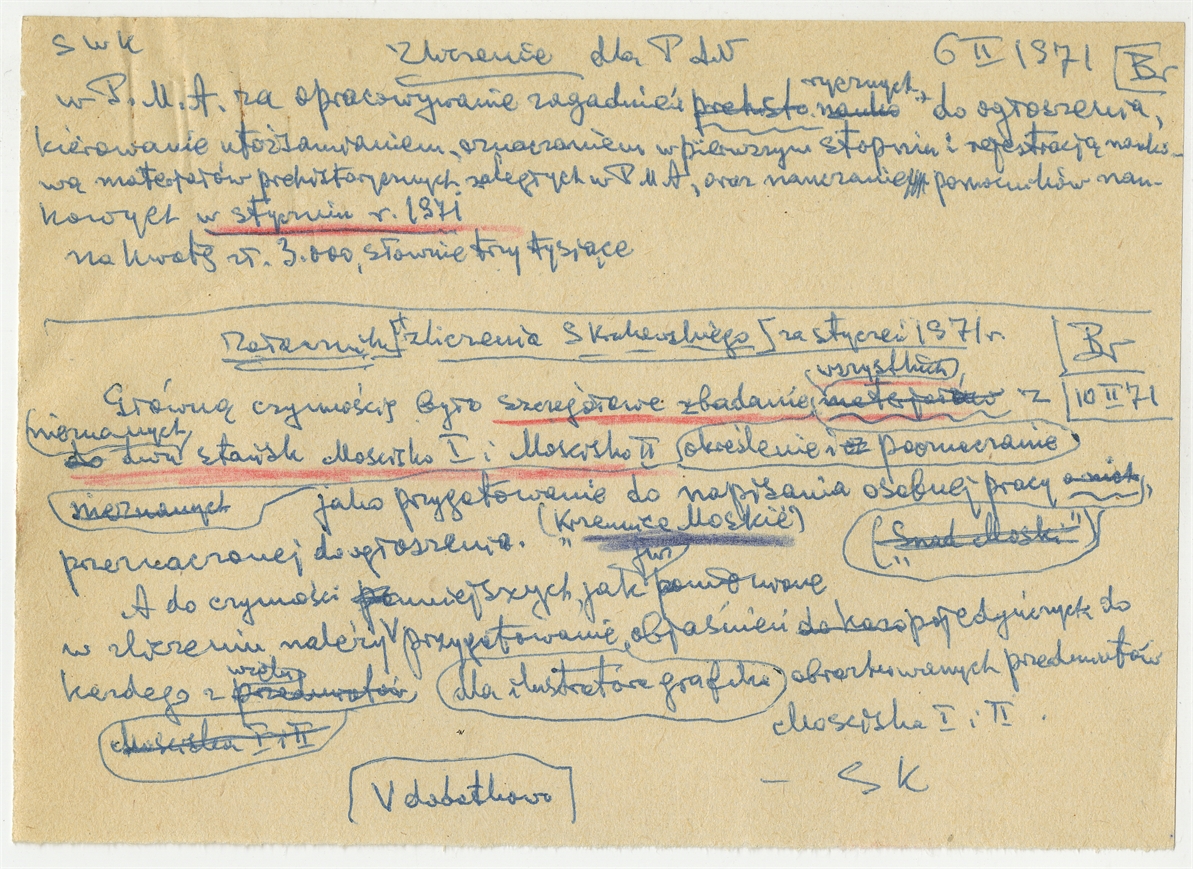 SWK Zlecenie dla PAN 6 II 1971 Br
rycznych
w P.M.A. za opracowywanie zagadnień prehisto nauko do ogłoszenia,
kierowanie utożsamianiem, oznaczaniem w pierwszym stopniu i rejestracją nauko-
wą materjałów prehistorycznych zaległych w PMA, oraz nauczanie pomocników nau-
kowych w styczniu r. 1971
na kwotę zł. 3.000, słownie trzy tysiące
Załącznik zliczenia S Krukowskiego za styczeń 1971 r. Br
wszystkich
Główną czynnością było szczegółowe zbadanie materjałów z 10 II 71
nieznanych
do dwu stanisk Mościsko I i Mościsko II określenie i oz pooznaczanie
nieznanych jako przygotowanie do napisania osobnej pracy o nich,
(„Krzemice Moskie”)
przeznaczonej do ogłoszenia. („Snad Moski”)
już
A do czynności pomniejszych, jak pomówione
w zleceniu, należy V przygotowanie objaśnień do każo pojedyńczych do
każdego z przedmiotów dla ilustratora grafika obrazkowanych przedmiotów
Mościska I i II Mościska I i II.
V dodatkowo — SK